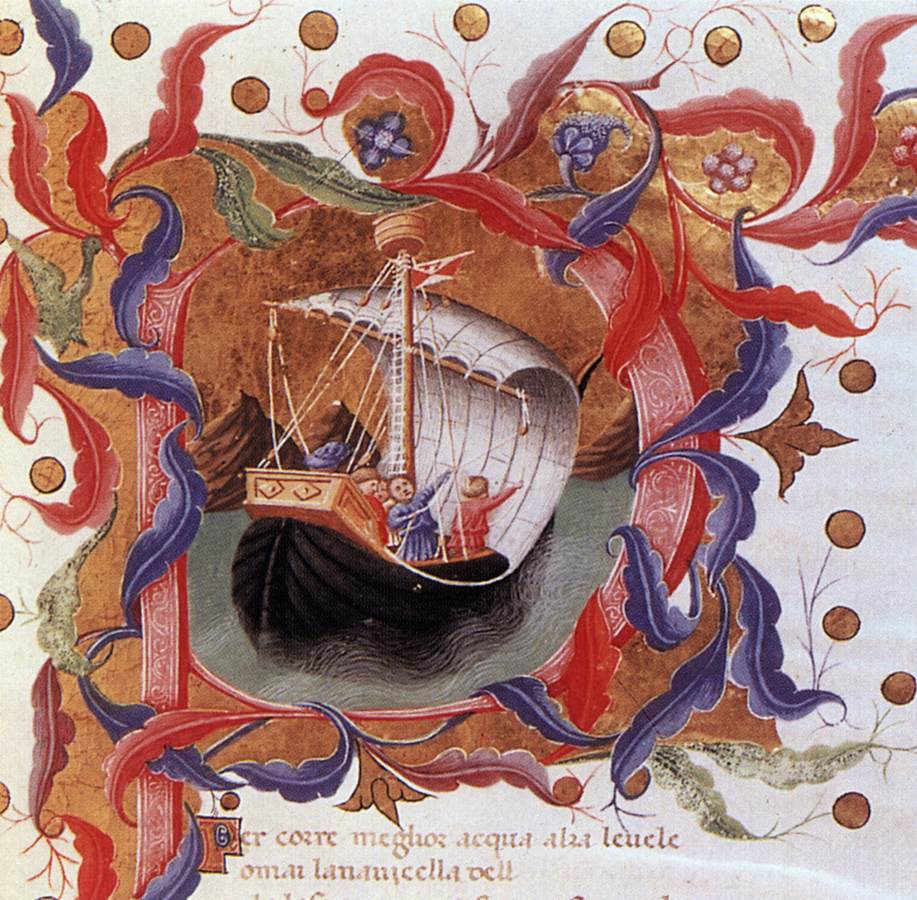 Per corre meglior acqua alza leuele
omai lanauicella dell